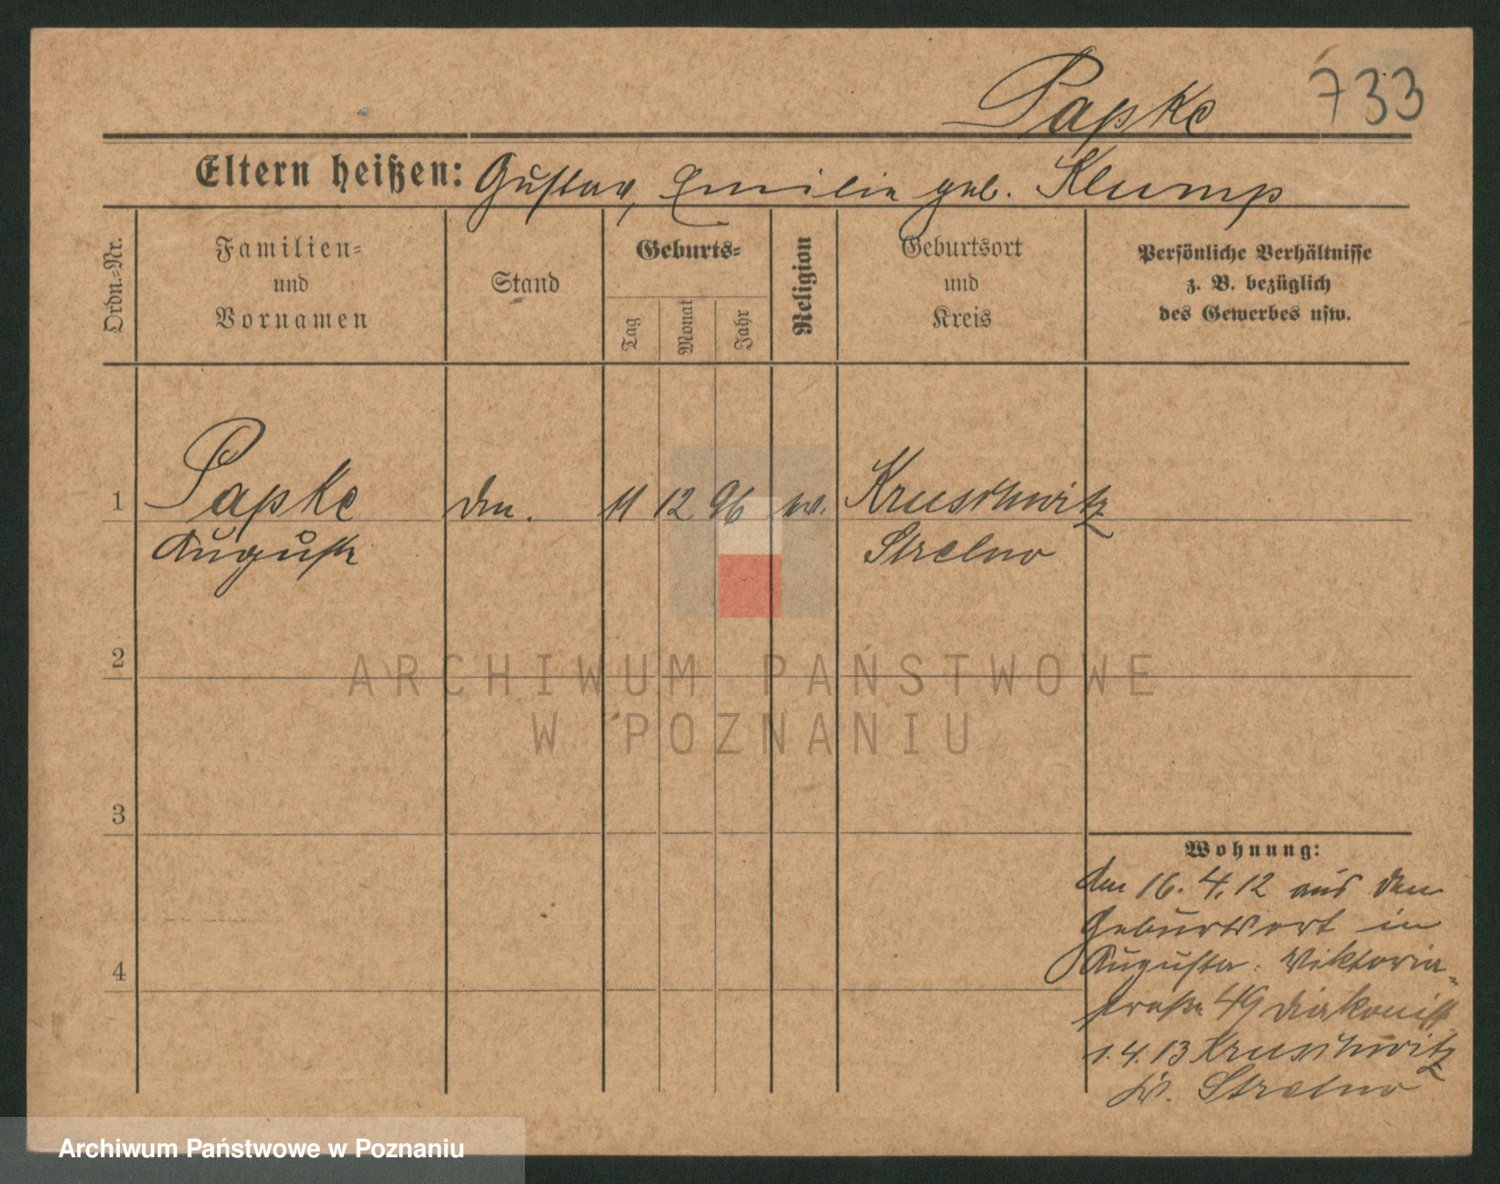 Papke 733
Eltern heißen: Gustav, Emilie geb. Klump
Ordn.-Nr.
Familien-
und
Vornamen
Stand
Geburts-
Tag
Monat
Jahr
Religion
Geburtsort
und
Kreis
Persönliche Verhältnisse
z. B. bezüglich
des Gewerbes usw.
1 Papke 11 12 96 Kruschwitz
Auguste Strelno
2
3
4
Wohnung:
den 16.4.12 aus dem
Geburtsort in
Augusta-Viktoria-
straße 49 Diakoniss
1.4.13 Kruschwitz
Kr. Strelno
ARCHIWUM PAŃSTWOWE
W POZNANIU
Archiwum Państwowe w Poznaniu